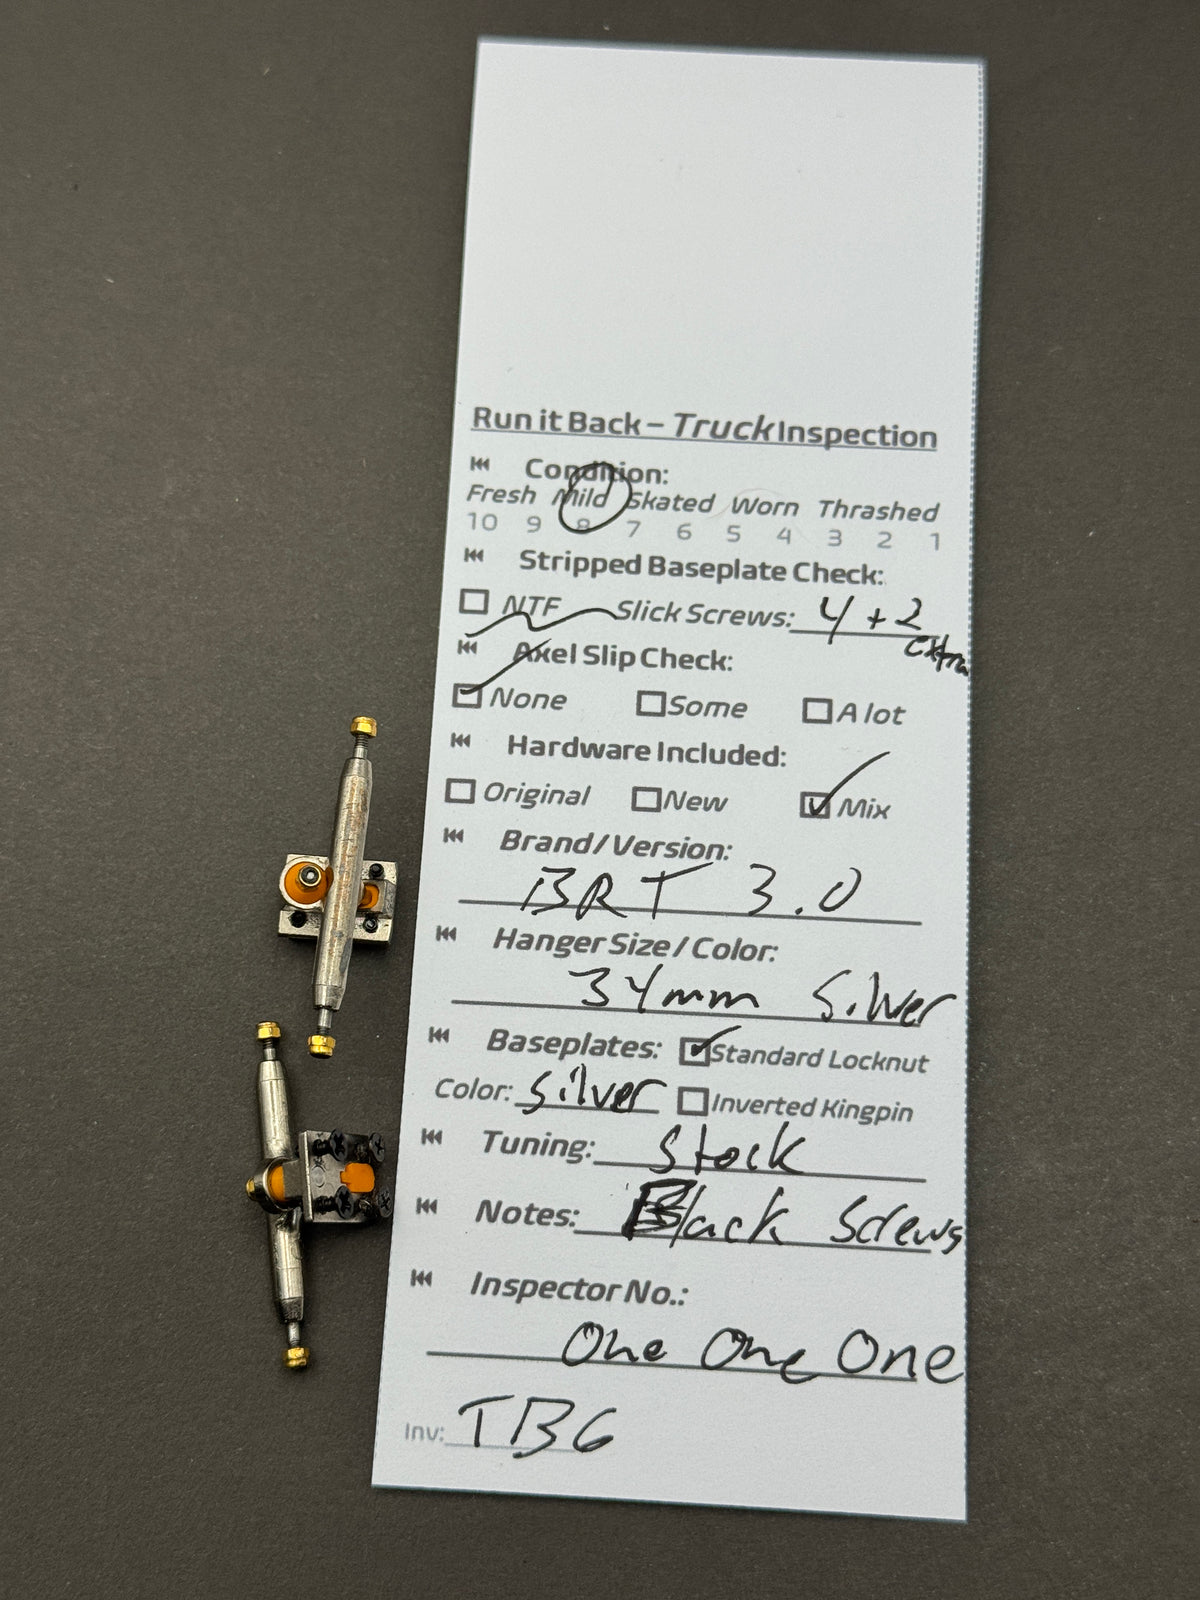 Run it Back – Truck Inspection
Condition:
Fresh Mild Skated Worn Thrashed
10 9 8 7 6 5 4 3 2 1
Stripped Baseplate Check:
NTF Slick Screws: 4 + 2 extra
Axel Slip Check:
None Some A lot
Hardware Included:
Original New Mix
Brand/Version:
BRT 3.0
Hanger Size / Color:
34mm Silver
Baseplates: Standard Locknut
Color: Silver Inverted Kingpin
Tuning: Stock
Notes: Black Screws
Inspector No.:
One One One
Inv: TB6